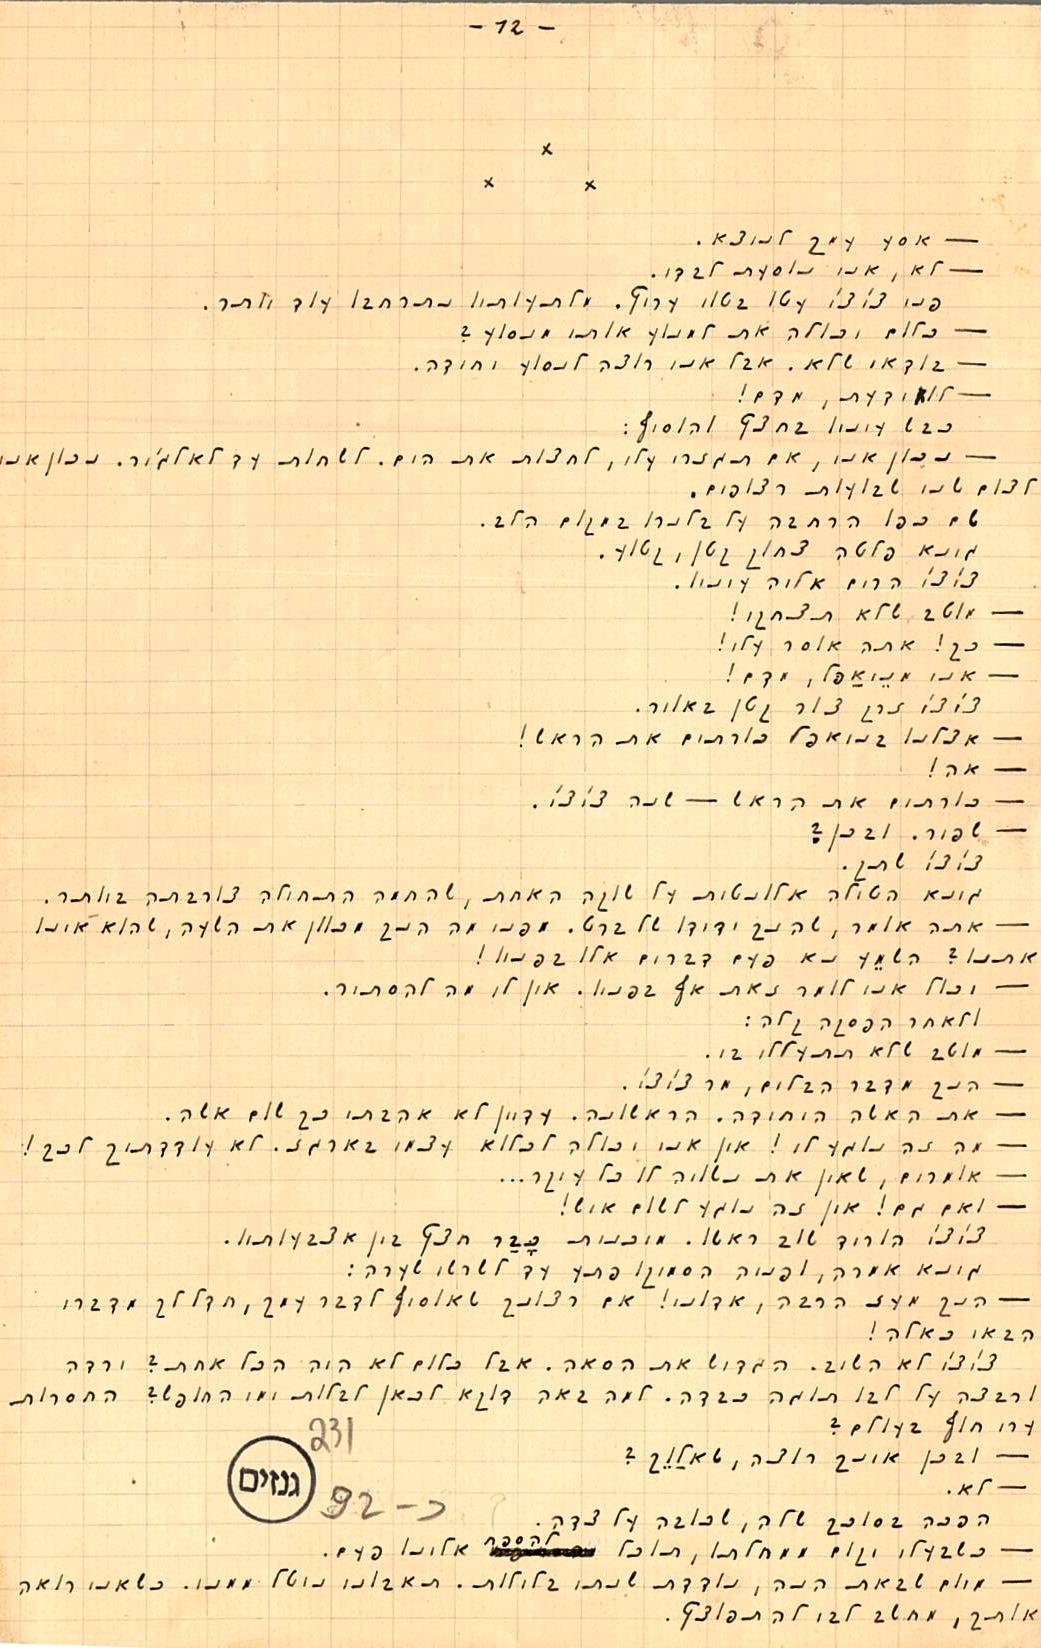 - 12 -
x
x x
— אסע עמך לנוצא.
— לא, אני נוסעת לבדי.
פני צ'וצ'ו עטו בטוי ערוף. מלתעותיו נתרחבו עוד יותר.
— כלום יכולה את למנוע אותי מנסוע?
— בודאי שלא. אבל אני רוצה לנסוע יחידה.
— לא ידעת, מדם!
כבש עיניו בחצץ והוסיף:
— נכון אני, אם תגזרי עלי, לחצות את הים. לשחות עד לאלג'יר. נכון אני
לצום שני שבועות רצופים.
שם כפו הרחבה על בלוריו במקום הלב.
ג'ינא פלטה צחוק קטן, קטוע.
צ'וצ'ו הרים אליה עיניו.
— מוטב שלא תצחקי!
— כך! אתה אוסר עלי!
— אני מניואפל, מדם!
צ'וצ'ו זרק צור קטן באויר.
— אצלנו בניואפל כורתים את הראש!
— אה!
— כורתים את הראש — שנה צ'וצ'ו.
— שפיר. ובכן?
צ'וצ'ו שתק.
ג'ינא הטילה אלונטית על שוקה האחת, שהחמה התחילה צורבתה ביותר.
— אתה אומר, שהנך ידידו של ברט. מפני מה הנך מכוון את השעה, שהוא אינו
אתנו? השמע נא פעם דברים אלו בפניו!
— יכול אני לומר זאת אף בפניו. אין לי מה להסתיר.
ולאחר הפסקה קלה:
— מוטב שלא תתעללי בי.
— הנך מדבר הבלים, מר צ'וצ'ו.
— את האשה היחידה. הראשונה. עדיין לא אהבתי כך שום אשה.
— מה זה נוגע לי! אין אני יכולה לכלוא עצמי בארגז. לא עודדתיך לכך!
— אומרים, שאין את נשויה לו כל עיקר...
— ואם גם! אין זה נוגע לשום איש!
צ'וצ'ו הוריד שוב ראשו. מוכנית כבר חצץ בין אצבעותיו.
ג'ינא אמרה, ופניה הסמיקו פתע עד לשרשי שערה:
— הנך מעז הרבה, אדוני! אם רצונך שאוסיף לדבר עמך, חדל לך מדברי
הבאי כאלה!
צ'וצ'ו לא השיב. הגדיש את הסאה. אבל כלום לא היה הכל אחת? ירדה
ורבצה על לבו תוגה כבדה. למה באה דוקא לכאן לבלות ימי החופש? החסרות
ערי חוף בעולם?
— ובכן אינך רוצה, שאלוך?
— לא.
הפכה בסוכך שלה, שכובה על צדה.
— כשבעלי יקום ממחלתו, תוכל להספח אלינו פעם.
— מיום שבאת הנה, נודדת שנתי בלילות. תאבוני ניטל ממני. כשאני רואה
אותך, מחשב לבי להתפוצץ.
גנזים
231
כ – 92